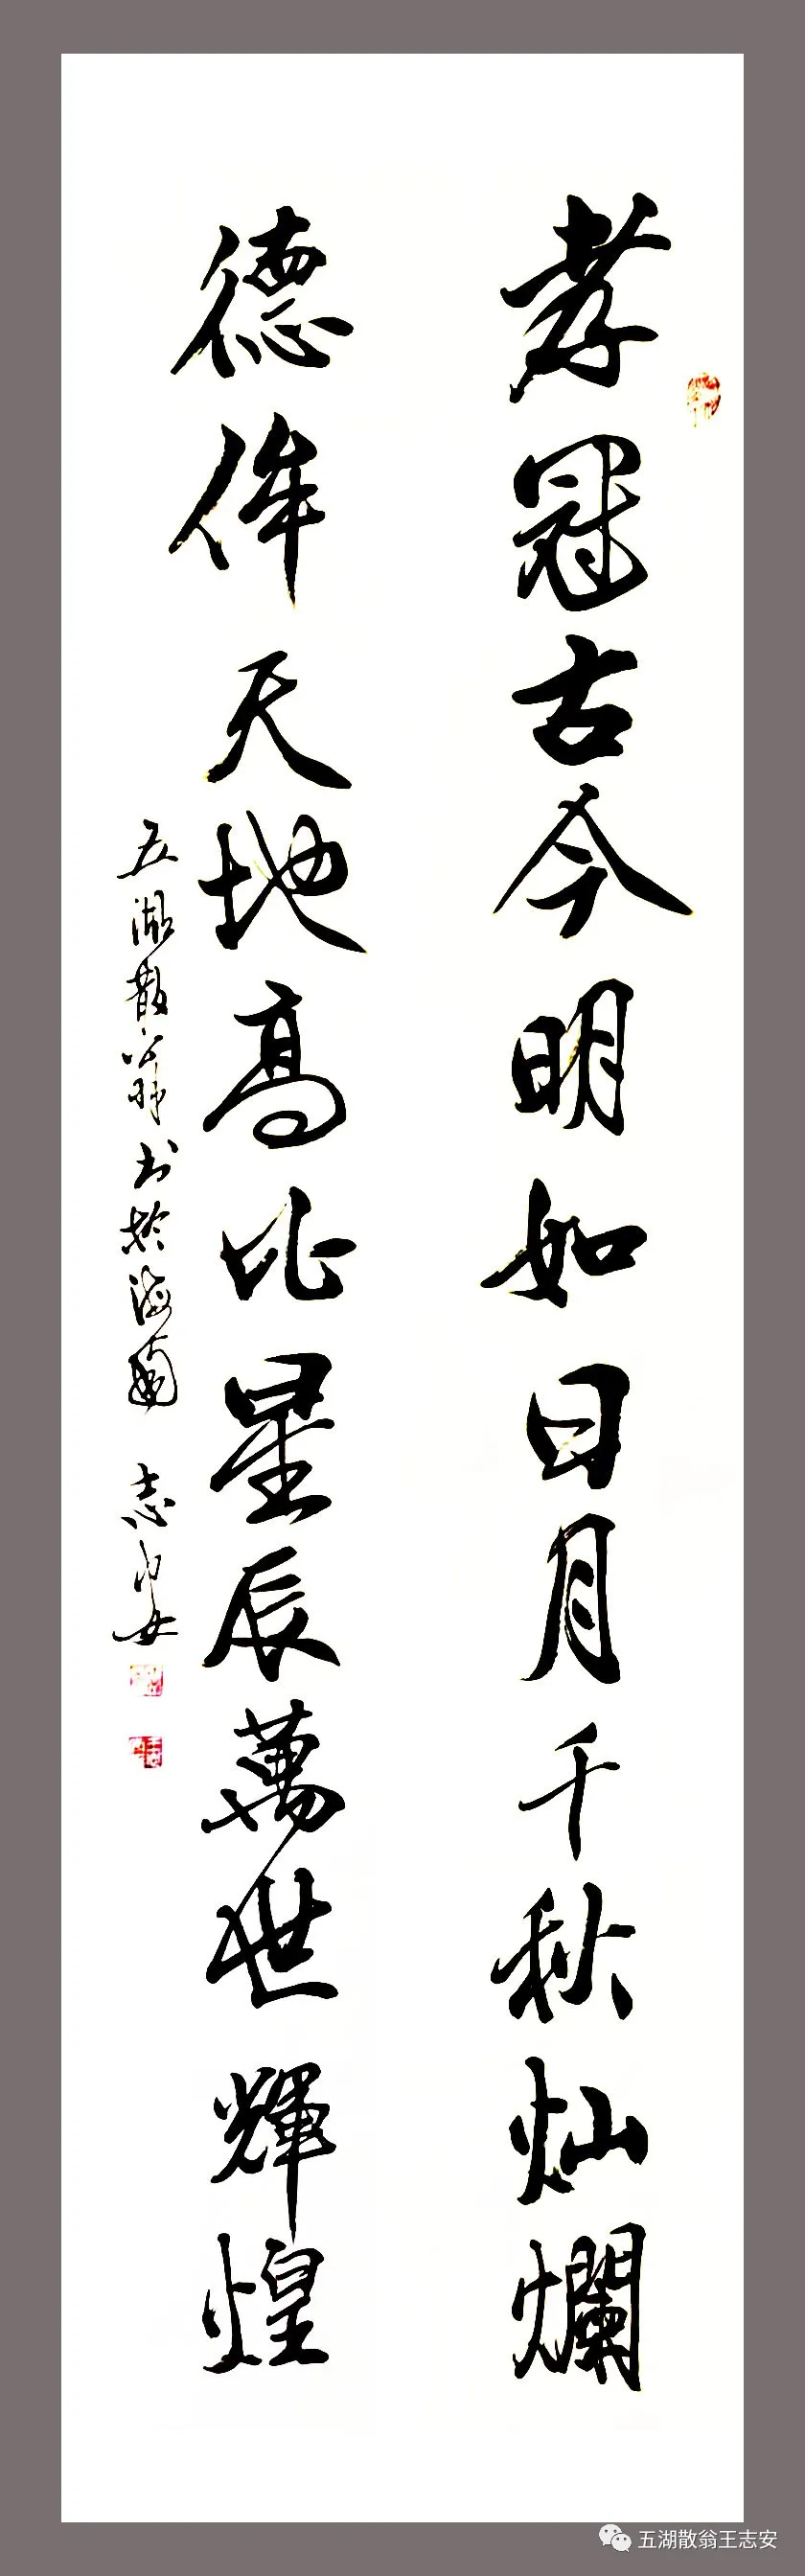 孝冠古今明如日月千秋灿爛
德侔天地高比星辰萬世輝煌
五湖散翁书於海南 志安
五湖散翁王志安